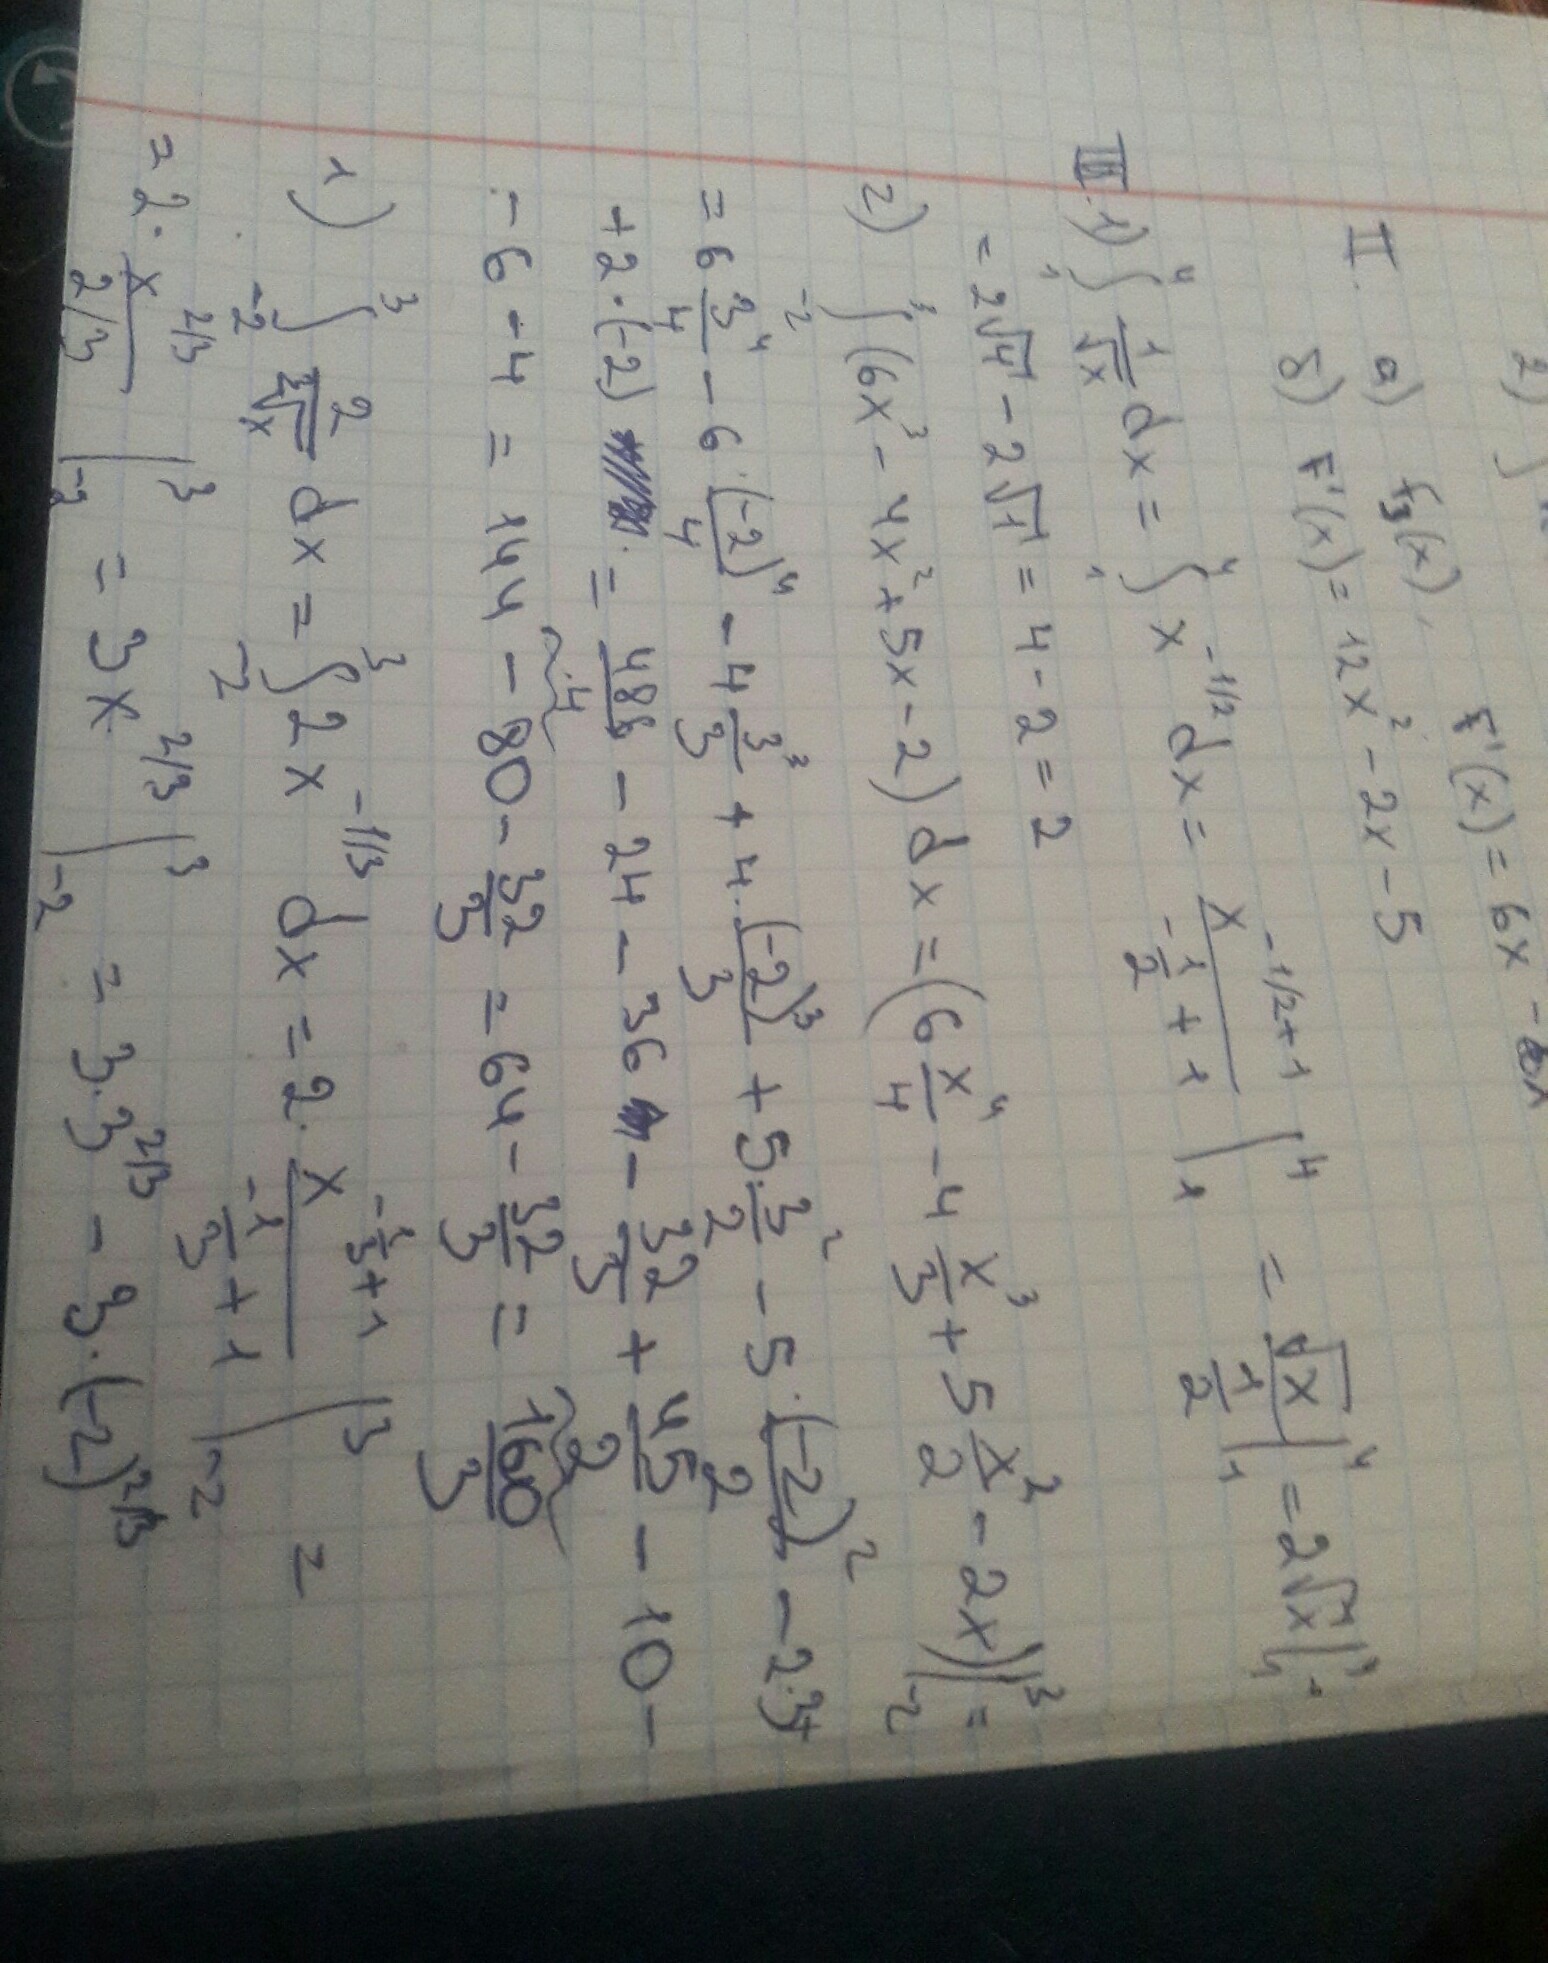 2) ∫
F'(x) = 6x -
II. a) f₃(x),
б) F'(x) = 12x² - 2x - 5
III. 1) ∫₁⁴ 1/√x dx = ∫₁⁴ x^(-1/2) dx = x^(-1/2+1)/(-1/2+1) |₁⁴ = √x/(1/2) |₁⁴ = 2√x |₁⁴ =
= 2√4 - 2√1 = 4 - 2 = 2
2) ∫₋₂³ (6x³ - 4x² + 5x - 2) dx = (6 x⁴/4 - 4 x³/3 + 5 x²/2 - 2x) |₋₂³ =
= 6 3⁴/4 - 6·(-2)⁴/4 - 4 3³/3 + 4·(-2)³/3 + 5·3²/2 - 5·(-2)²/2 - 2·3+
+ 2·(-2) = 486/4 - 24 - 36 - 32/3 + 45/2 - 10 -
- 6 - 4 = 144 - 80 - 32/3 = 64 - 32/3 = 160/3
1) ∫₋₂³ 2/³√x dx = ∫₋₂³ 2x^(-1/3) dx = 2· x^(-1/3+1)/(-1/3+1) |₋₂³ =
= 2· x^(2/3)/(2/3) |₋₂³ = 3x^(2/3) |₋₂³ = 3·3^(2/3) - 3·(-2)^(2/3)